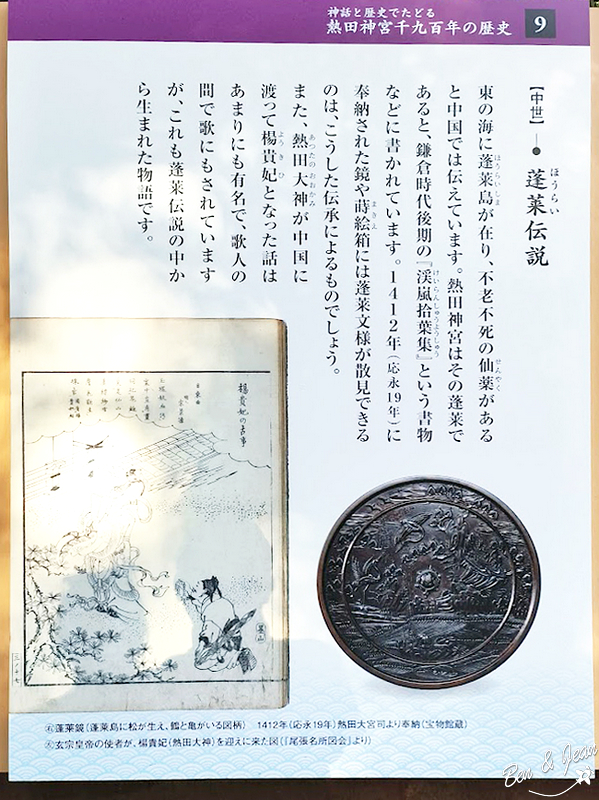 神話と歴史でたどる
熱田神宮千九百年の歴史
9
【中世】
ほうらい
蓬莱伝説
東の海に蓬莱島が在り、不老不死の仙薬がある
ほうらいしま
せんやく
と中国では伝えています。熱田神宮はその蓬莱で
あると、鎌倉時代後期の『渓嵐拾葉集』という書物
けいらんしゅうようしゅう
などに書かれています。1412年(応永19年)に
奉納された鏡や蒔絵箱には蓬莱文様が散見できる
まきえ
のは、こうした伝承によるものでしょう。
また、熱田大神が中国に
あつたのおおかみ
渡って楊貴妃となった話は
ようきひ
あまりにも有名で、歌人の
間で歌にもされています
が、これも蓬莱伝説の中か
ら生まれた物語です。
楊貴妃の古事
㊨蓬莱鏡(蓬莱島に松が生え、鶴と亀がいる図柄) 1412年(応永19年)熱田大宮司より奉納(宝物館蔵)
㊧玄宗皇帝の使者が、楊貴妃(熱田大神)を迎えに来た図(『尾張名所図会』より)
Ben & Jean